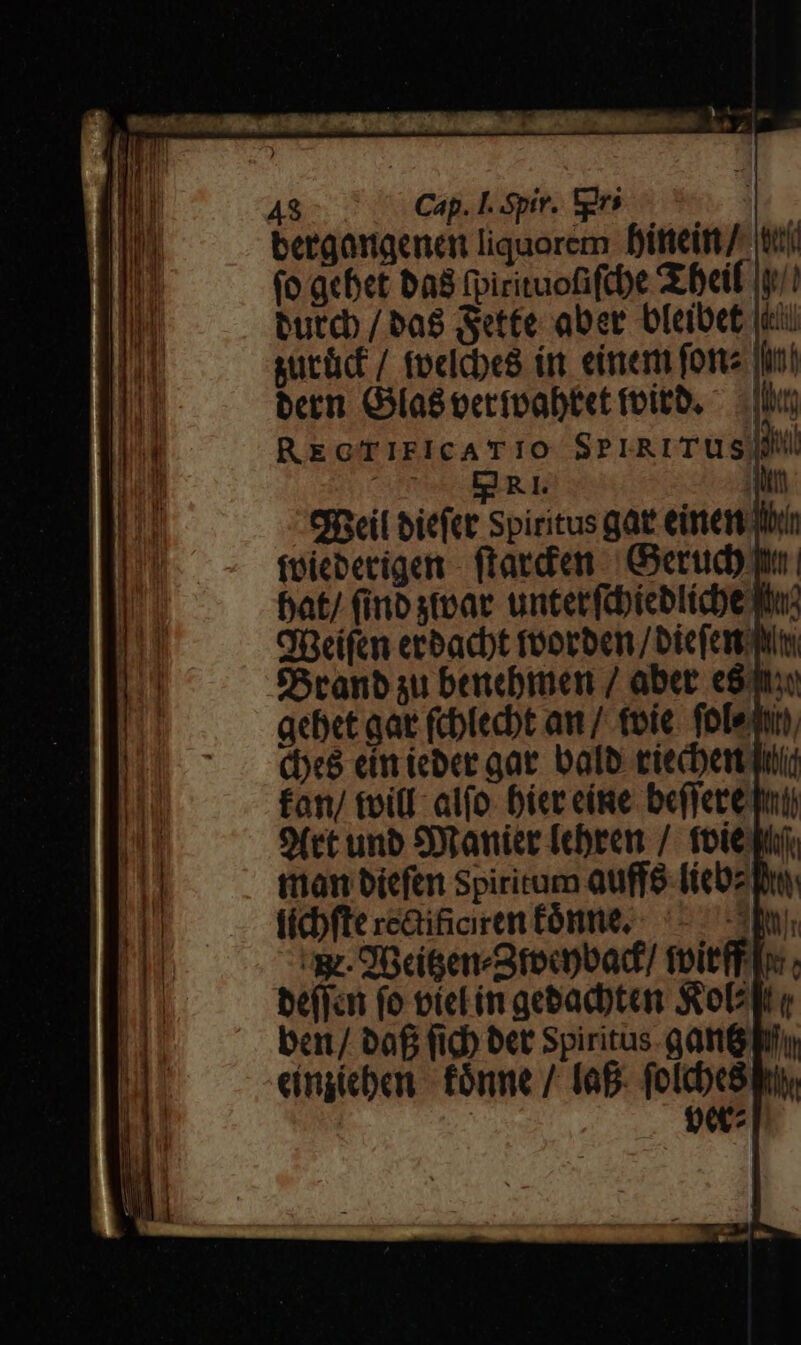 48 Cap. I. Spir. 🜿ri
bergangenen liquorem hinein /
ſo gehet das ſpirituoſiſche Theil
durch / das Fette aber bleibet
zuruͤck / welches in einem ſon⸗
dern Glas verwahret wird.
RECTIFICATIO SPIRITUS
🜿RI.
Weil dieſer Spiritus gar einen
wiederigen ſtarcken Geruch
hat / ſind zwar unterſchiedliche
Weiſen erdacht worden / dieſen
Brand zu benehmen / aber es
gehet gar ſchlecht an / wie ſol⸗
ches ein ieder gar bald riechen
kan / will alſo hier eine beſſere
Art und Manier lehren / wie
man dieſen Spiritum auffs lieb⸗
lichſte rectificiren koͤnne.
℞. Weitzen⸗Zweyback / wirff
deſſen ſo viel in gedachten Kol⸗
ben / daß ſich der Spiritus gantz
einziehen koͤnne / laß ſolches
ver⸗